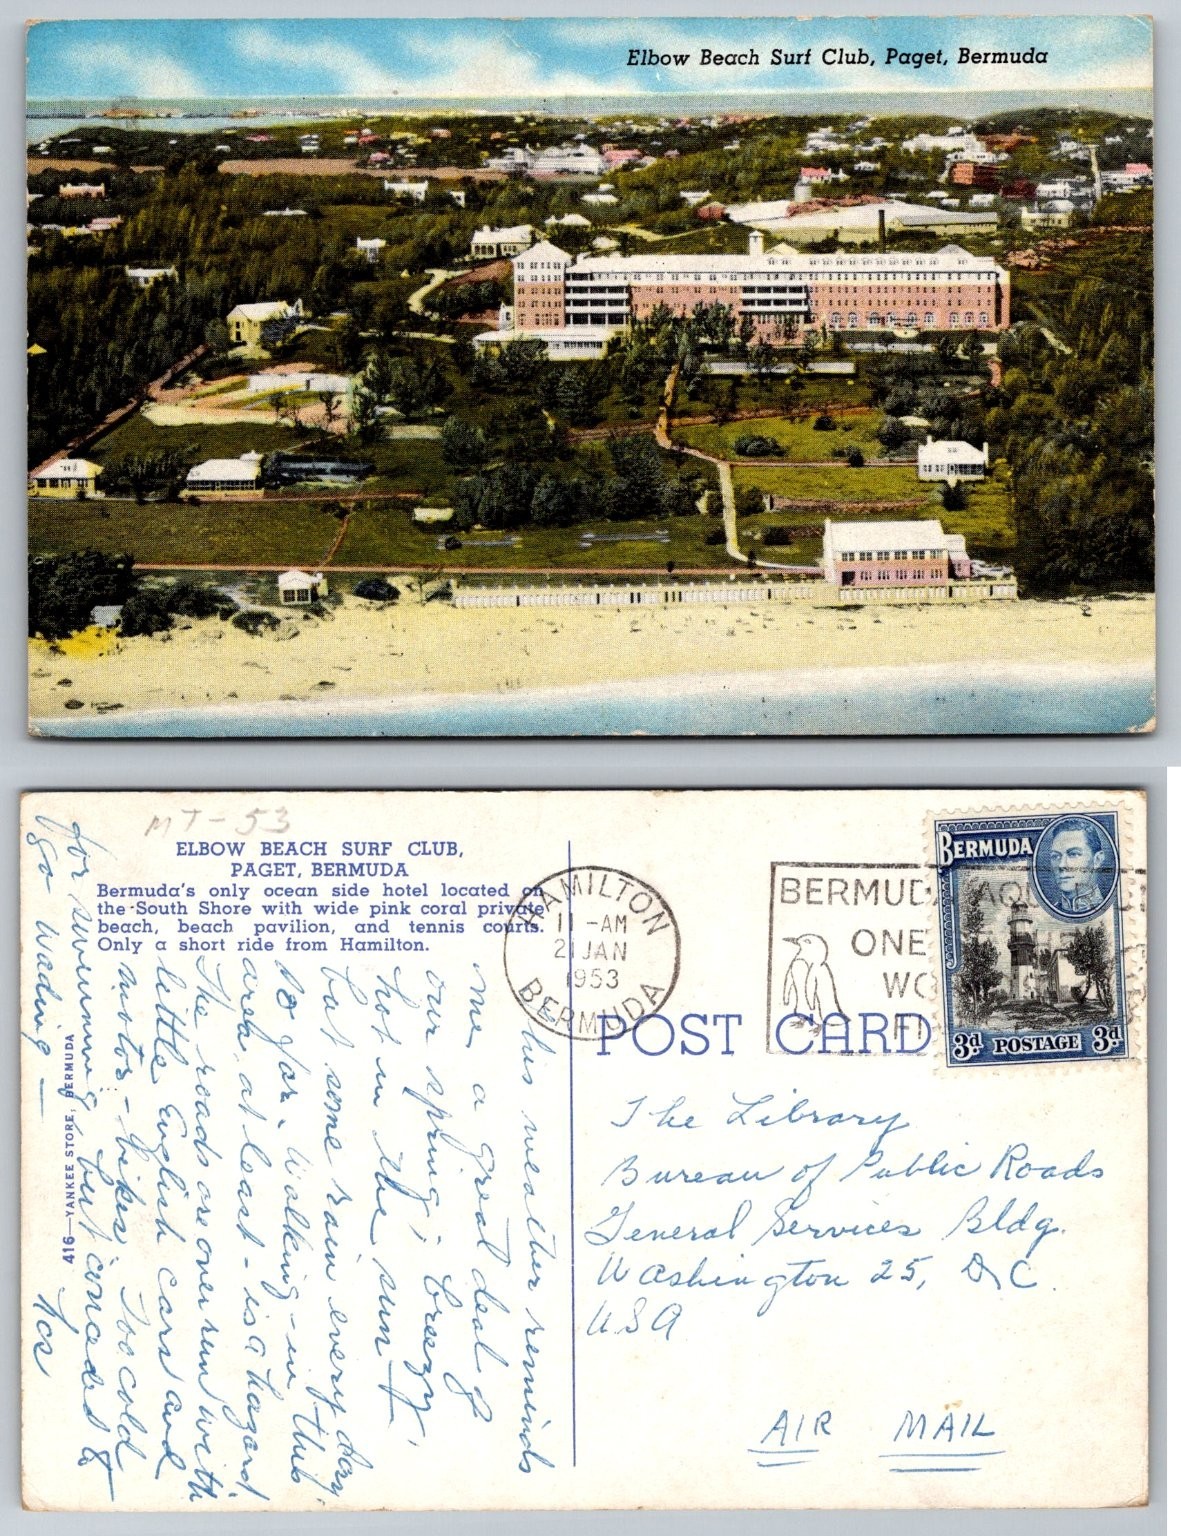 Elbow Beach Surf Club, Paget, Bermuda
MT-53
ELBOW BEACH SURF CLUB,
PAGET, BERMUDA
Bermuda's only ocean side hotel located on
the South Shore with wide pink coral private
beach, beach pavilion, and tennis courts.
Only a short ride from Hamilton.
This weather reminds
me a great deal of
our spring; breezy,
hot in the sun
but some rain every day
so far. Walking - in this
area, at least - is a hazard.
The roads are overrun with
little English cars and
motor-bikes. Too cold
for swimming, but conceded to
go wading -
416—YANKEE STORE, BERMUDA
HAMILTON
11-AM
21 JAN
1953
BERMUDA
BERMUDA AQU
ONE
WO
FI
BERMUDA
3d POSTAGE 3d
POST CARD
The Library
Bureau of Public Roads
General Services Bldg.
Washington 25, DC
USA
AIR MAIL